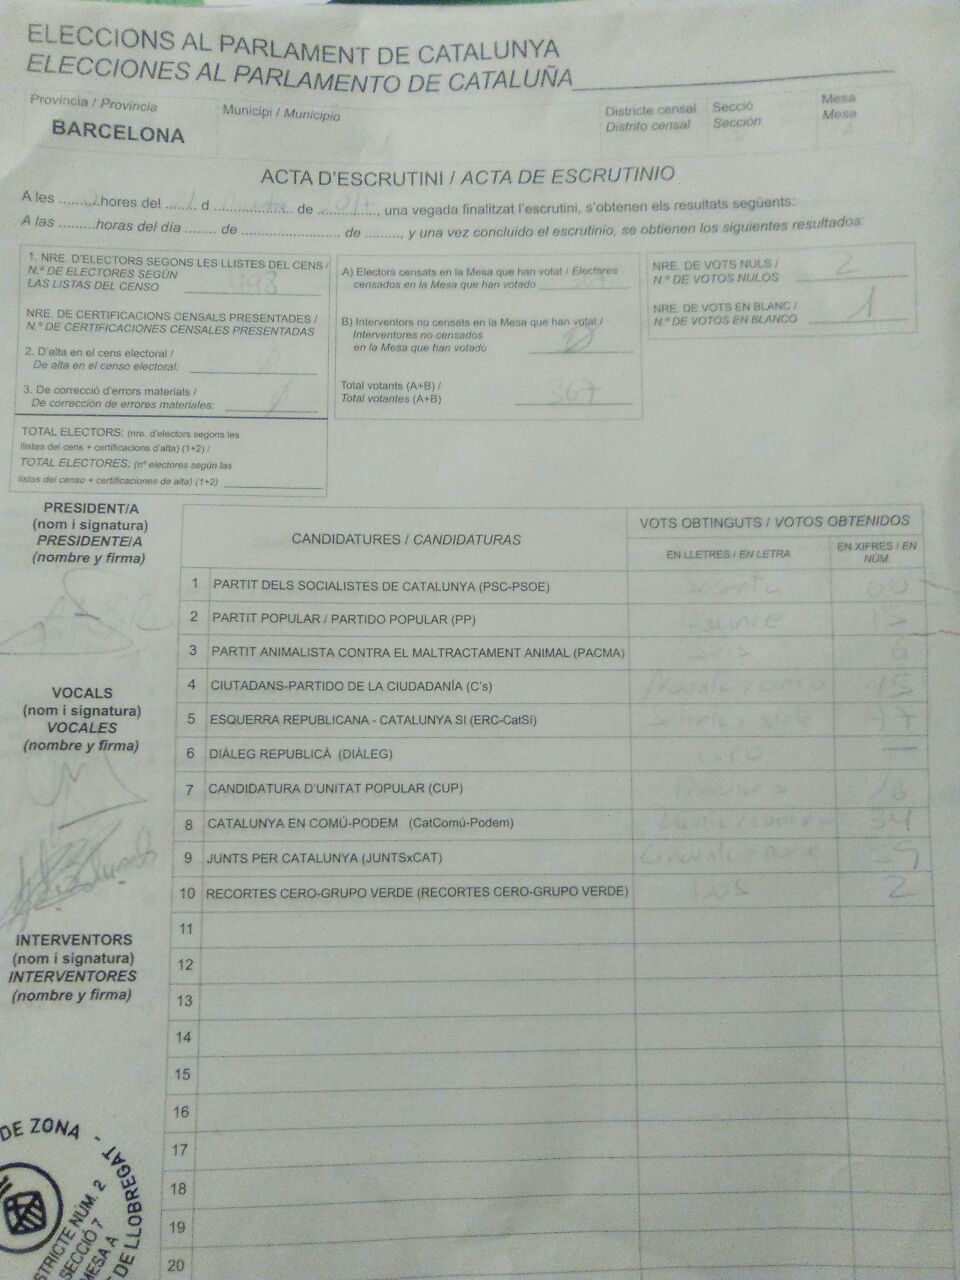 ELECCIONS AL PARLAMENT DE CATALUNYA
ELECCIONES AL PARLAMENTO DE CATALUÑA
Província / Provincia
BARCELONA
Municipi / Municipio
Districte censal
Distrito censal
Secció
Sección
Mesa
Mesa
A
ACTA D'ESCRUTINI / ACTA DE ESCRUTINIO
A les .........hores del ........ d .................... de ..............., una vegada finalitzat l'escrutini, s'obtenen els resultats següents:
A las .........horas del día ........ de ......................... de ........., y una vez concluido el escrutinio, se obtienen los siguientes resultados:
1. NRE. D'ELECTORS SEGONS LES LLISTES DEL CENS /
N.º DE ELECTORES SEGÚN
LAS LISTAS DEL CENSO
NRE. DE CERTIFICACIONS CENSALS PRESENTADES /
N.º DE CERTIFICACIONES CENSALES PRESENTADAS
2. D'alta en el cens electoral /
De alta en el censo electoral:
3. De correcció d'errors materials /
De corrección de errores materiales:
TOTAL ELECTORS: (nre. d'electors segons les
llistes del cens + certificacions d'alta) (1+2) /
TOTAL ELECTORES: (nº electores según las
listas del censo + certificaciones de alta) (1+2)
A) Electors censats en la Mesa que han votat / Electores
censados en la Mesa que han votado
B) Interventors no censats en la Mesa que han votat /
Interventores no censados
en la Mesa que han votado
Total votants (A+B) /
Total votantes (A+B) 367
NRE. DE VOTS NULS /
N.º DE VOTOS NULOS 2
NRE. DE VOTS EN BLANC /
N.º DE VOTOS EN BLANCO 1
PRESIDENT/A
(nom i signatura)
PRESIDENTE/A
(nombre y firma)
VOCALS
(nom i signatura)
VOCALES
(nombre y firma)
INTERVENTORS
(nom i signatura)
INTERVENTORES
(nombre y firma)
CANDIDATURES / CANDIDATURAS
VOTS OBTINGUTS / VOTOS OBTENIDOS
EN LLETRES / EN LETRA
EN XIFRES / EN
NÚM.
1 PARTIT DELS SOCIALISTES DE CATALUNYA (PSC-PSOE)
2 PARTIT POPULAR / PARTIDO POPULAR (PP) 15
3 PARTIT ANIMALISTA CONTRA EL MALTRACTAMENT ANIMAL (PACMA) Seis 6
4 CIUTADANS-PARTIDO DE LA CIUDADANÍA (C's) 95
5 ESQUERRA REPUBLICANA - CATALUNYA SÍ (ERC-CatSí) 77
6 DIÀLEG REPUBLICÀ (DIÀLEG)
7 CANDIDATURA D'UNITAT POPULAR (CUP) 16
8 CATALUNYA EN COMÚ-PODEM (CatComú-Podem)
9 JUNTS PER CATALUNYA (JUNTSxCAT)
10 RECORTES CERO-GRUPO VERDE (RECORTES CERO-GRUPO VERDE) Dos 2
11
12
13
14
15
16
17
18
19
20
DE ZONA -
DE LLOBREGAT -
STRICTE NÚM. 2
SECCIÓ 7
MESA A